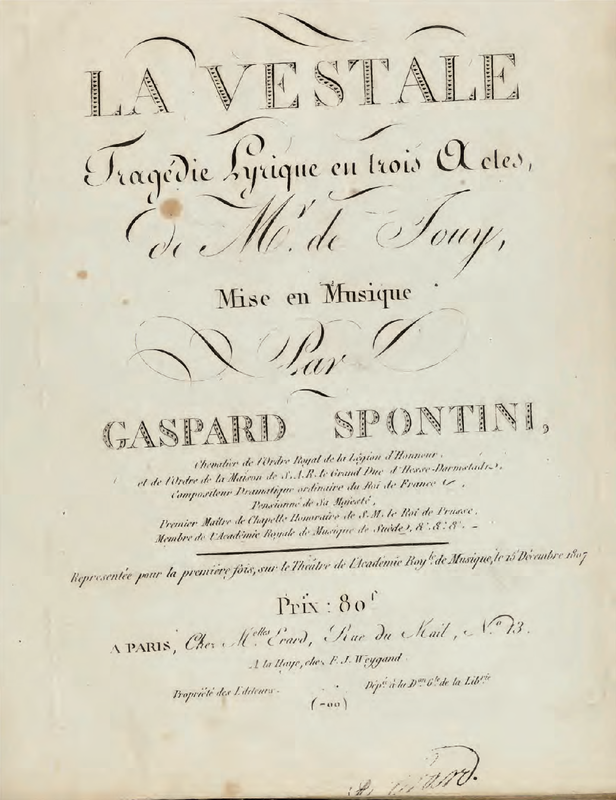 LA VESTALE
Tragédie Lyrique en trois Actes,
de Mr. de Jouy,
Mise en Musique
Par
GASPARD SPONTINI,
Chevalier de l'Ordre Royal de la Légion d'Honneur,
et de l'Ordre de la Maison de S.A.R. le Grand Duc d'Hesse-Darmstadt,
Compositeur Dramatique ordinaire du Roi de France
Pensionné de Sa Majesté,
Premier Maître de Chapelle Honoraire de S.M. le Roi de Prusse,
Membre de l'Académie Royale de Musique de Suède, &c. &c. &c.
Représentée pour la première fois, sur le Théâtre de l'Académie Royle. de Musique, le 15 Décembre 1807
Prix : 80f
A PARIS, Chez Melles Erard, Rue du Mail, No. 13.
A la Haye, chez F. J. Weygand.
Propriété des Editeurs. Dépé. à la Don. Gle. de la Librie.